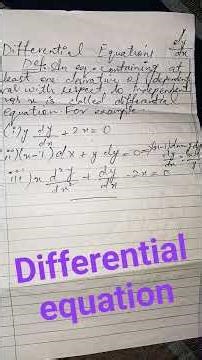 Differential Equations
dy/dx
Def. An eq. containing at
least one derivative of dependent
with respect to independent
is called differential
equation. For example
(i) y dy/dx + 2x = 0
(ii) (x-1) dx + y dy = 0
(iii) x d²y/dx² + dy/dx - 2x = 0
Differential
equation